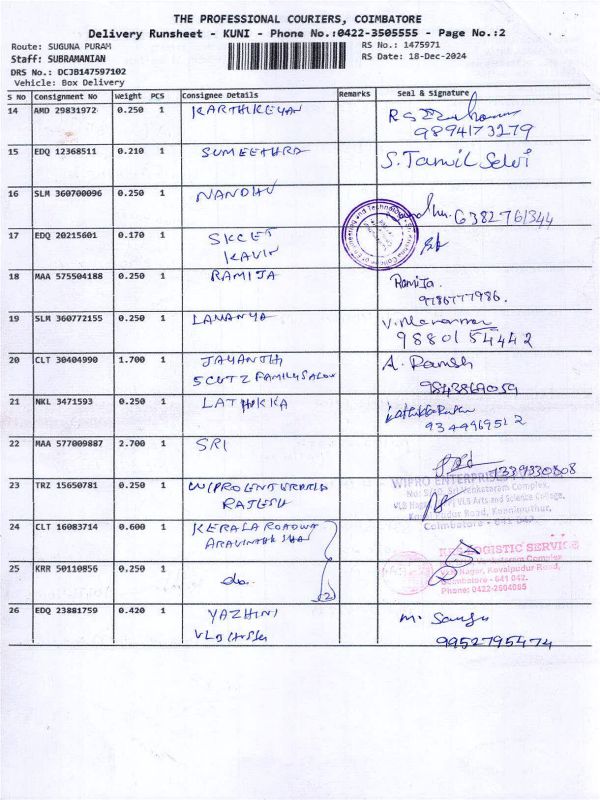 THE PROFESSIONAL COURIERS, COIMBATORE
Delivery Runsheet - KUNI - Phone No.:0422-3505555 - Page No.:2
Route: SUGUNA PURAM RS No.: 1475971
Staff: SUBRAMANIAN RS Date: 18-Dec-2024
DRS No.: DCJB147597102
Vehicle: Box Delivery
S No Consignment No Weight PCS Consignee Details Remarks Seal & Signature
14 AMD 29831972 0.250 1 KARTHIKEYAN
9894173279
15 EDQ 12368511 0.210 1 SUMEETHRA S. Tamil Selvi
16 SLM 360700096 0.250 1 NANDHU 6382761344
17 EDQ 20215601 0.170 1 SKCET
KAVIN
18 MAA 575504188 0.250 1 RAMIJA Ramija.
9786777986.
19 SLM 360772155 0.250 1 LAVANYA
9880154442
20 CLT 30404990 1.700 1 JAYANTH A. Ramesh
5 CUTZ FAMILY SALON
9843869059
21 NKL 3471593 0.250 1 LATHIKKA
9344969512
22 MAA 577009887 2.700 1 SRI
7339330808
WIPRO ENTERPRISES
23 TRZ 15650781 0.250 1 WIPRO ENTERPRISES
RAJESH
VLB Arts and Science College,
Road, Kovaipudur,
Coimbatore - 641 042
24 CLT 16083714 0.600 1 KERALA ROADWA
ARAVINTH
LOGISTIC SERVICE
25 KRR 50110856 0.250 1 do.
(2)
Nagar, Kovaipudur Road,
Coimbatore - 641 042.
Phone: 0422-2604085
26 EDQ 23881759 0.420 1 YAZHINI M.
VLB
9952795474